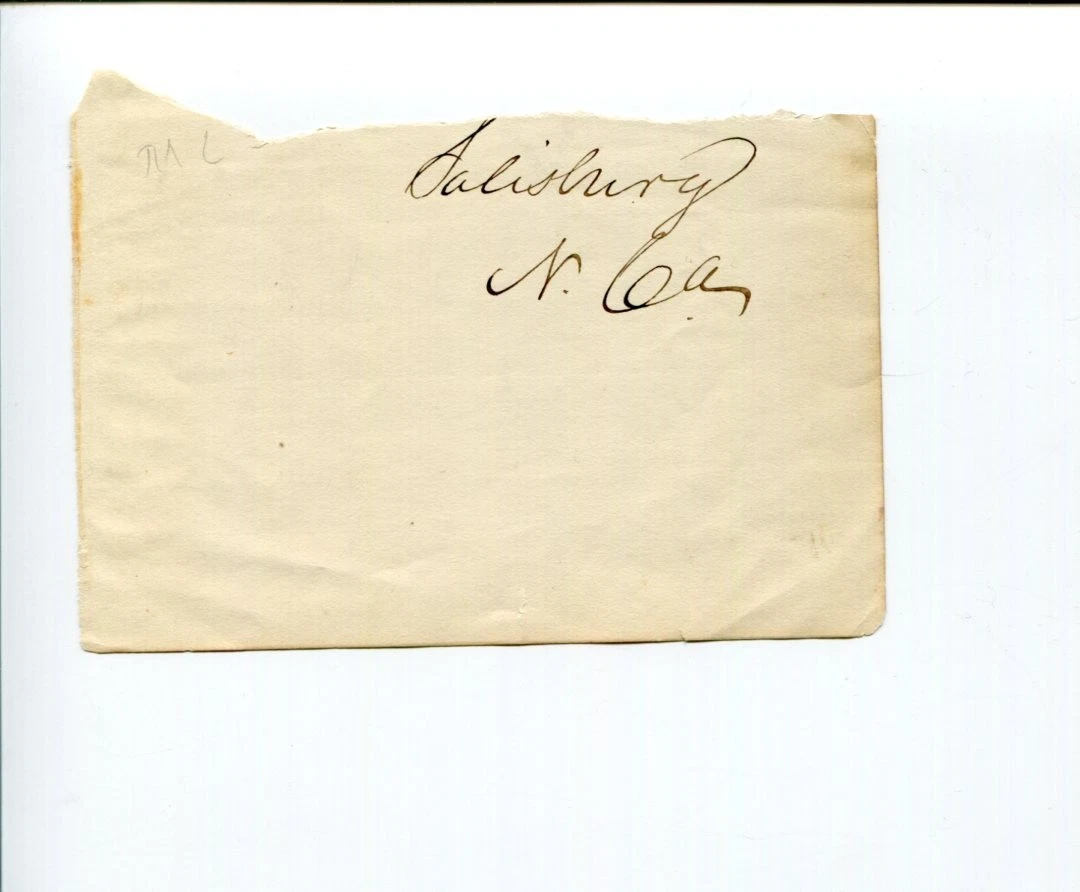 Salisbury
N. Ca,